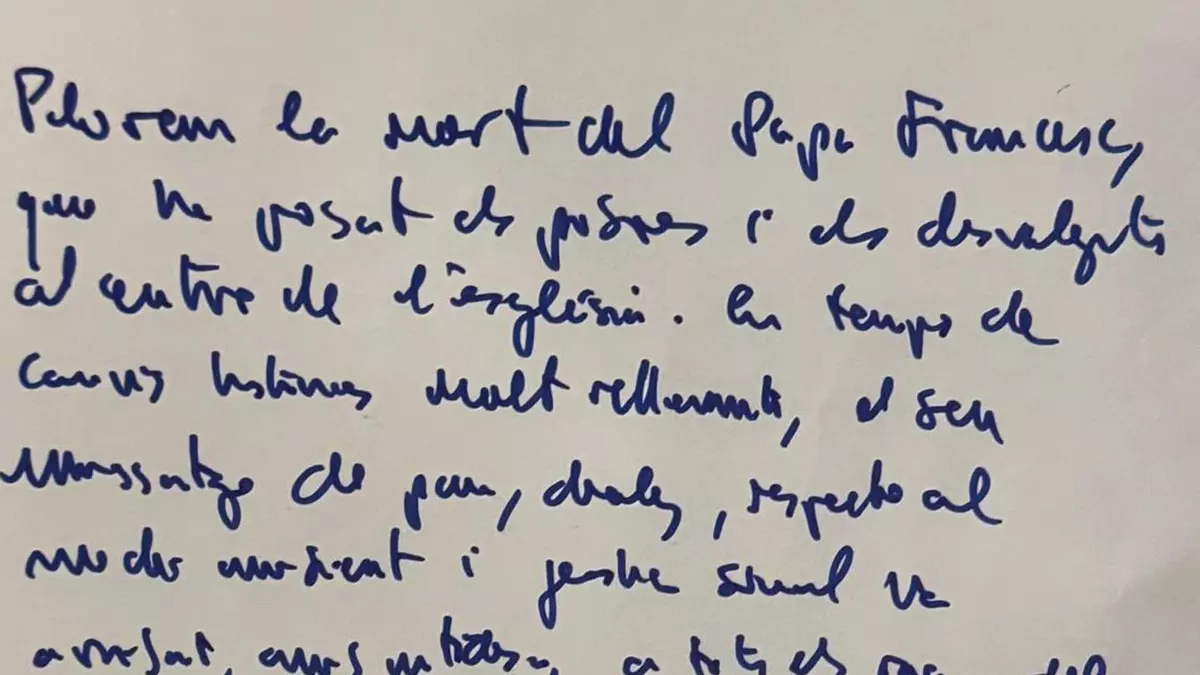 Plorem la mort del Papa Francesc,
que ha posat els pobres i els desvalguts
al centre de l'església. En temps de
canvis històrics molt rellevants, el seu
missatge de pau, diàleg, respecte al
medi ambient i justícia social va
arribar, a tots els del